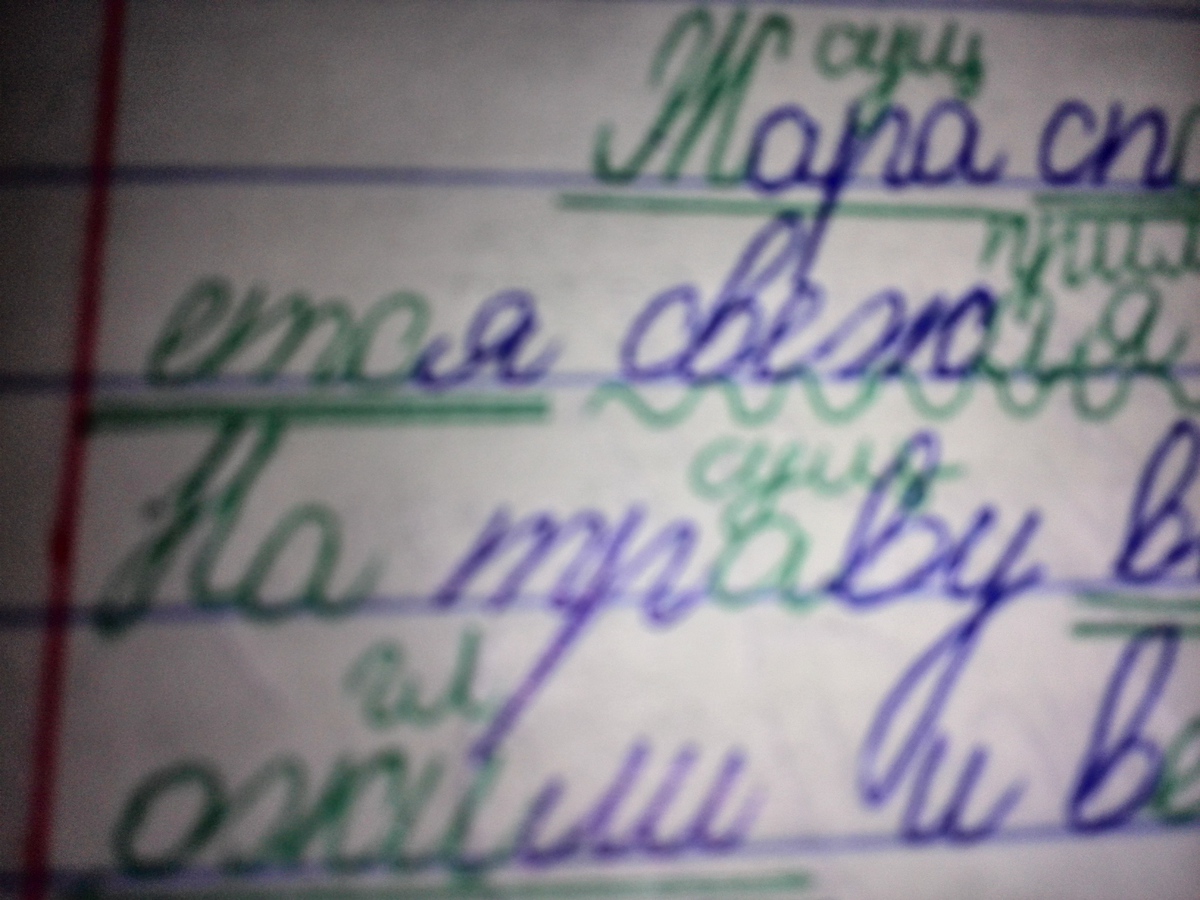 сущ
Жара сп
прил
ется свежая
сущ
На траву в
гл
ожили и ве